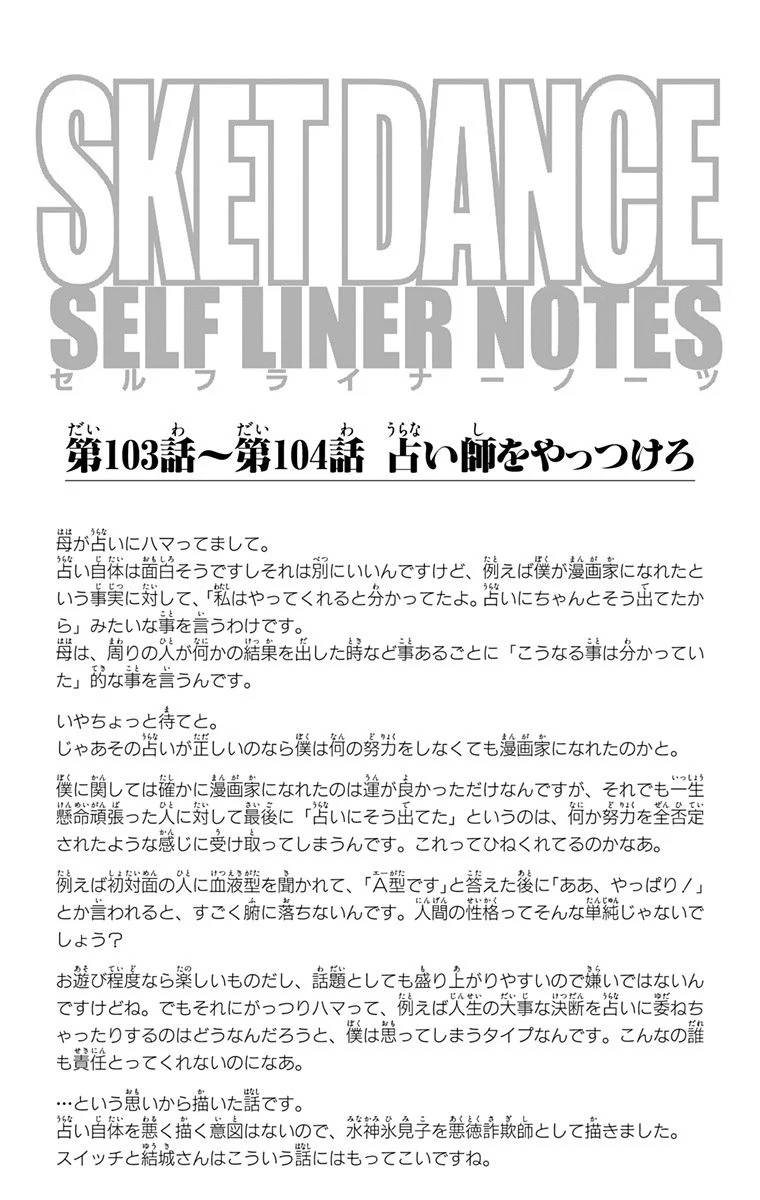 SKET DANCE
SELF LINER NOTES
セルフライナーノーツ
第103話〜第104話 占い師をやっつけろ
母が占いにハマってまして。
占い自体は面白そうですしそれは別にいいんですけど、例えば僕が漫画家になれたと
いう事実に対して、「私はやってくれると分かってたよ。占いにちゃんとそう出てたか
ら」みたいな事を言うわけです。
母は、周りの人が何かの結果を出した時など事あるごとに「こうなる事は分かってい
た」的な事を言うんです。
いやちょっと待てと。
じゃあその占いが正しいのなら僕は何の努力をしなくても漫画家になれたのかと。
僕に関しては確かに漫画家になれたのは運が良かっただけなんですが、それでも一生
懸命頑張った人に対して最後に「占いにそう出てた」というのは、何か努力を全否定
されたような感じに受け取ってしまうんです。これってひねくれてるのかなあ。
例えば初対面の人に血液型を聞かれて、「A型です」と答えた後に「ああ、やっぱり！」
とか言われると、すごく腑に落ちないんです。人間の性格ってそんな単純じゃないで
しょう？
お遊び程度なら楽しいものだし、話題としても盛り上がりやすいので嫌いではないん
ですけどね。でもそれにがっつりハマって、例えば人生の大事な決断を占いに委ねち
ゃったりするのはどうなんだろうと、僕は思ってしまうタイプなんです。こんなの誰
も責任とってくれないのになあ。
…という思いから描いた話です。
占い自体を悪く描く意図はないので、水神氷見子を悪徳詐欺師として描きました。
スイッチと結城さんはこういう話にはもってこいですね。